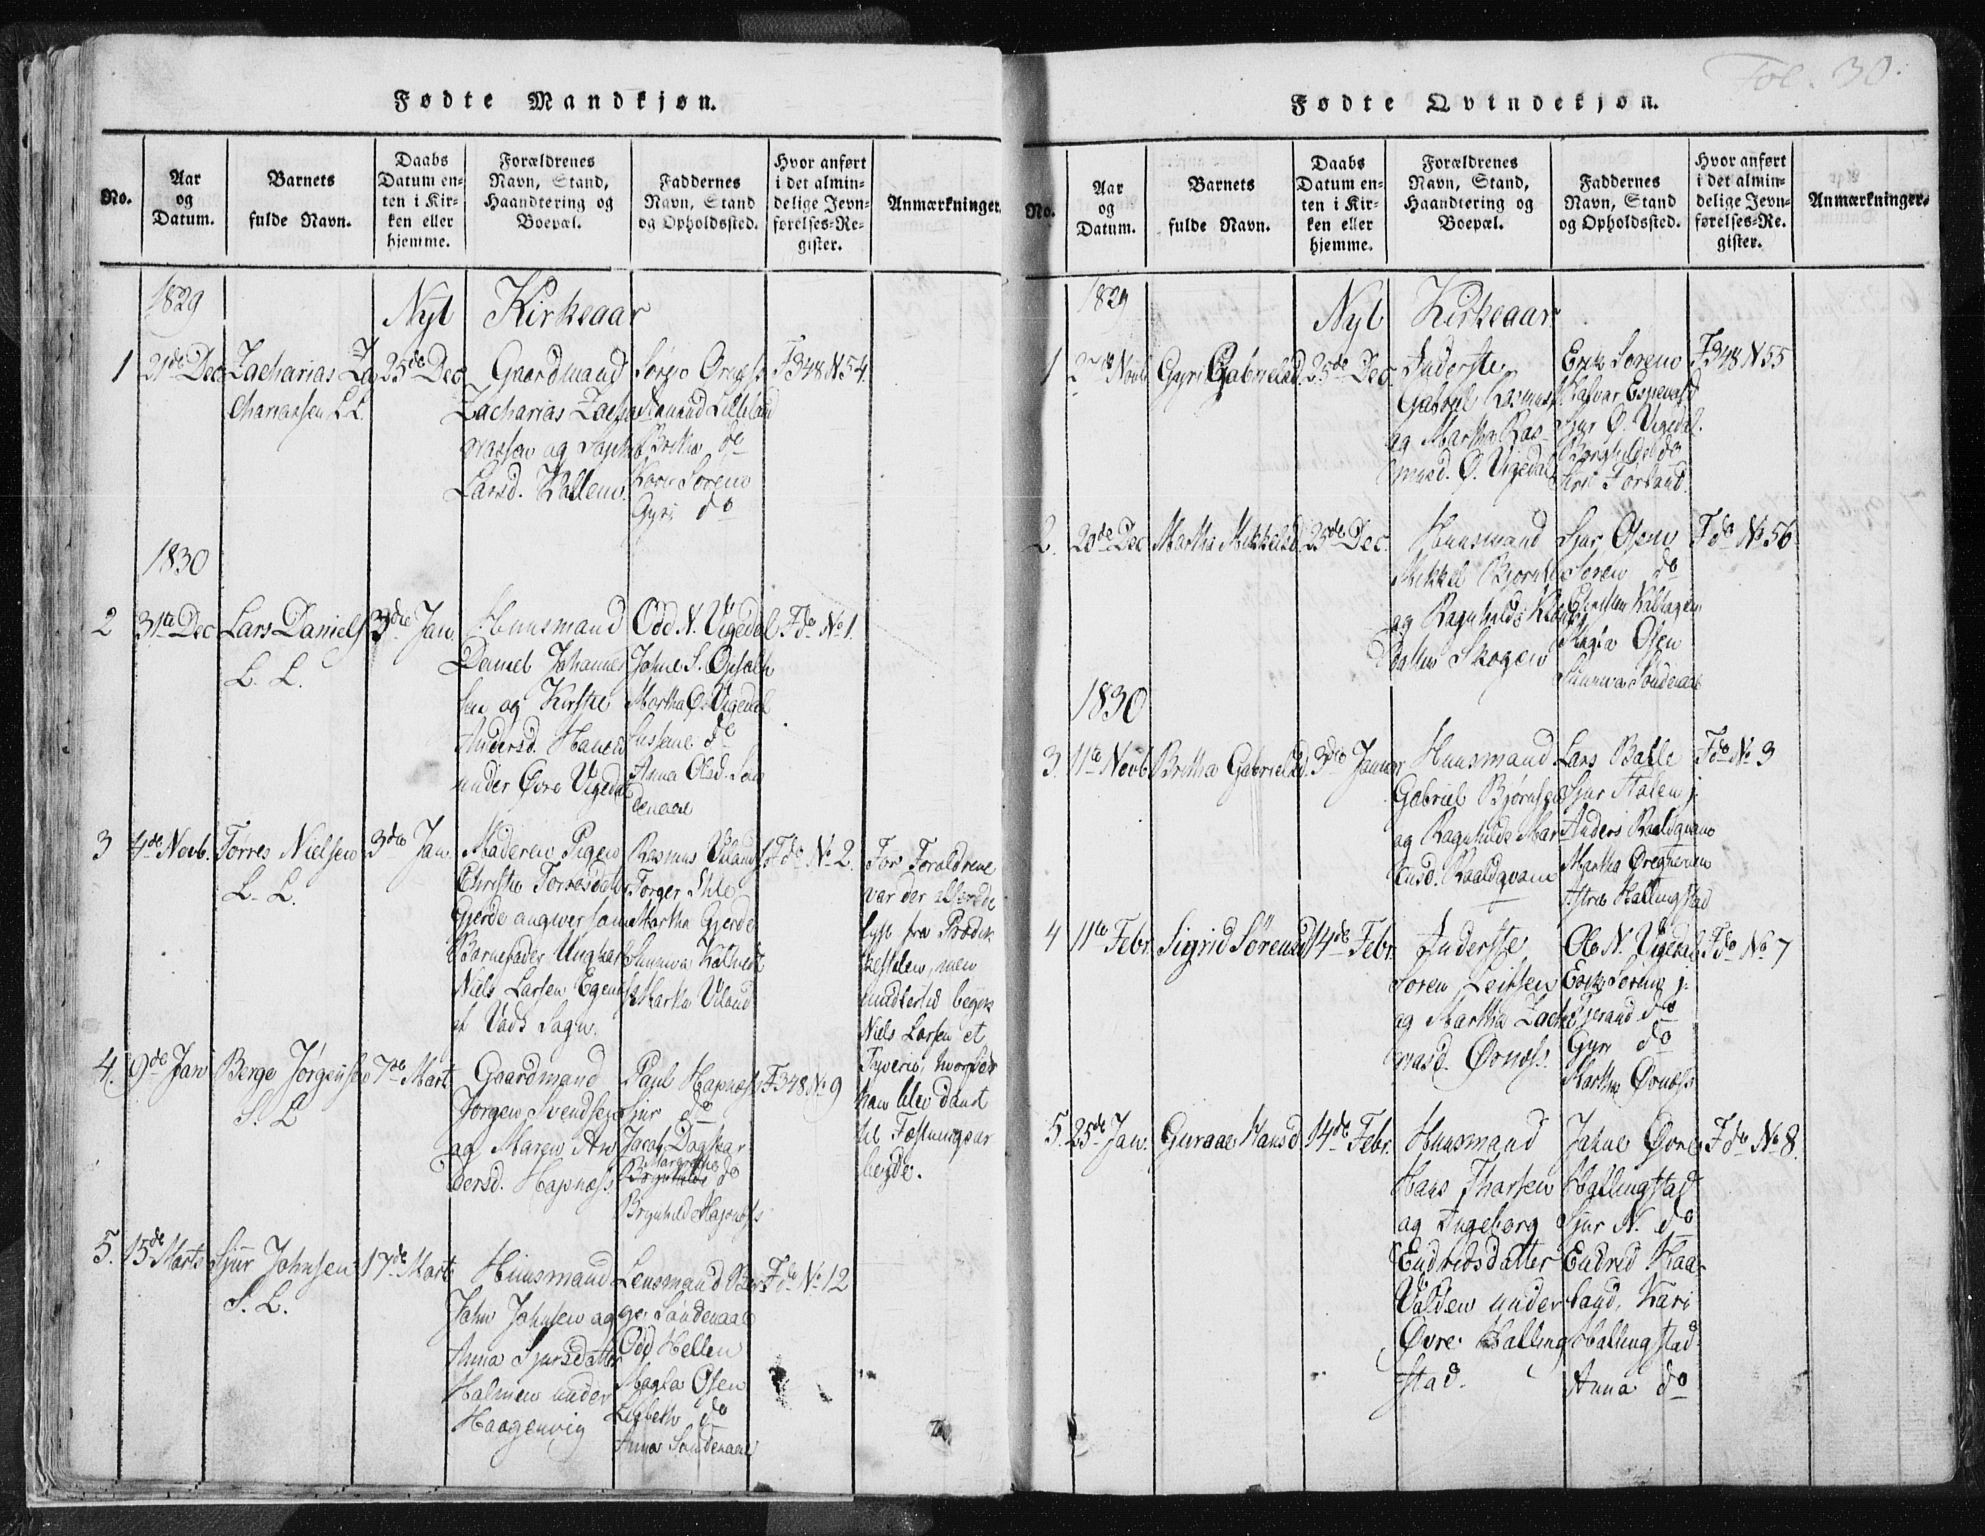 Fol. 30.
Fødte Mandkjøn.
No.
Aar
og
Datum.
Barnets
fulde Navn.
Daabs
Datum en-
ten i Kir-
ken eller
hjemme.
Forældrenes
Navn, Stand,
Haandtering og
Boepæl.
Faddernes
Navn, Stand
og Opholdssted.
Hvor anført
i det almin-
delige Jevn-
førelses-Re-
gister.
Anmærkninger.
1829
Nyt Kirkeaar
1
21de Dec
Zacharias Za
chariassen L L.
25de Dec
Gaardmand
Zacharias Zacha
riassen og
Larsd. Hallem.
Britha do
Gyri do
F 348 N 54.
1830
2
31te Dec
Lars Daniels
L. L.
3die Jan
Huusmand
Daniel Johannes
sen og Kirstie
Andersd.
under Øvre Vigedal
Odd N. Vigedal
Johne S. Opsalh
Martha Ø. Vigedal
do
Anna Olsd. Søn
denaae
F do No 1.
3
4de Novb.
Torres Nielsen
L. L.
3die Jan
Moderen Pigen
Christie Torresdatter
Gjerde angiver som
Barnefader Ungkarl
Niels Larsen
af Vads Sogn.
Rasmus
Torger
Martha Gjerde
Sunniva
Martha
F do No 2.
For Forældrene
var der allerede
lyst fra Prædik
kestolen, men
imidlertid begik
Niels Larsen et
Tyverie, hvorfor
han blev dømt
til Fæstningsar
beyde.
4.
9de Jan
Berge Jørgensen
S. L
7de Mart
Gaardmand
Jørgen Svendsen
og Maren An
dersd. Hapnæss
Paul Hapnæss
Sjur do
Jacob
Margrethe
do
Brynhild Hapnæss
F 348 No 9
5.
15de Marts
Sjur Johnsen
S. L.
17de Mart
Huusmand
John Johnsen og
Anna Sjursdatter
Holmen under
Haagenvig
Lensmand Bør
ge Søndenaae
Odd Hellen
Magla Osen
Lisbeth do
Anna Søndenaae
F do No 12
Fødte Qvindekjøn.
No.
Aar
og
Datum.
Barnets
fulde Navn.
Daabs
Datum en-
ten i Kir-
ken eller
hjemme.
Forældrenes
Navn, Stand,
Haandtering og
Boepæl.
Faddernes
Navn, Stand
og Opholdssted.
Hvor anført
i det almin-
delige Jevn-
førelses-Re-
gister.
Anmærkninger.
1829
Nyt Kirkeaar
1
2de Novb
Gyri Gabrielsd.
25de Dec.
Inderste
Gabriel Rasmuss
og Martha Ras
musd. Ø. Vigedal
Erik
Halvar Espevold
Sjur Ø. Vigedal.
Borghilde do
Siri Førland.
F 348 N 55
2.
20de Dec
Martha Mikkelsd.
25de Dec.
Huusmand
Mikkel
og Ragnhilde
datter Skogen
Sjur Osen
Søren do
Magla Osen
Sunniva Søndenaae
F do No 56
1830
3.
11te Novb
Britha Gabrielsd.
3die Januar
Huusmand
Gabriel Bjørnsen
og Ragnhilde Mar
tensd. Raaldqvam
Lars Balle
Sjur
Anders Raaldqvam
Martha
Hallingstad
F do No 3
4
11te Febr.
Sigrid Sørensd
14de Febr.
Inderste
Søren Leifsen
og Martha Zacha
riasd. Ørnæss.
Ole N. Vigedal
do
Gyri do
Martha Ørnæss
F do No 7
5.
25de Jan.
Guroae Hansd
14de Febr.
Huusmand
Hans Tharsen
og Ingeborg
Endredsdatter
Valden under
Øvre Halling
stad.
Johne Øvre
Hallingstad
Sjur N. do
Endred Haa
land, Kari
Hallingstad
Anna do
F do No 8.